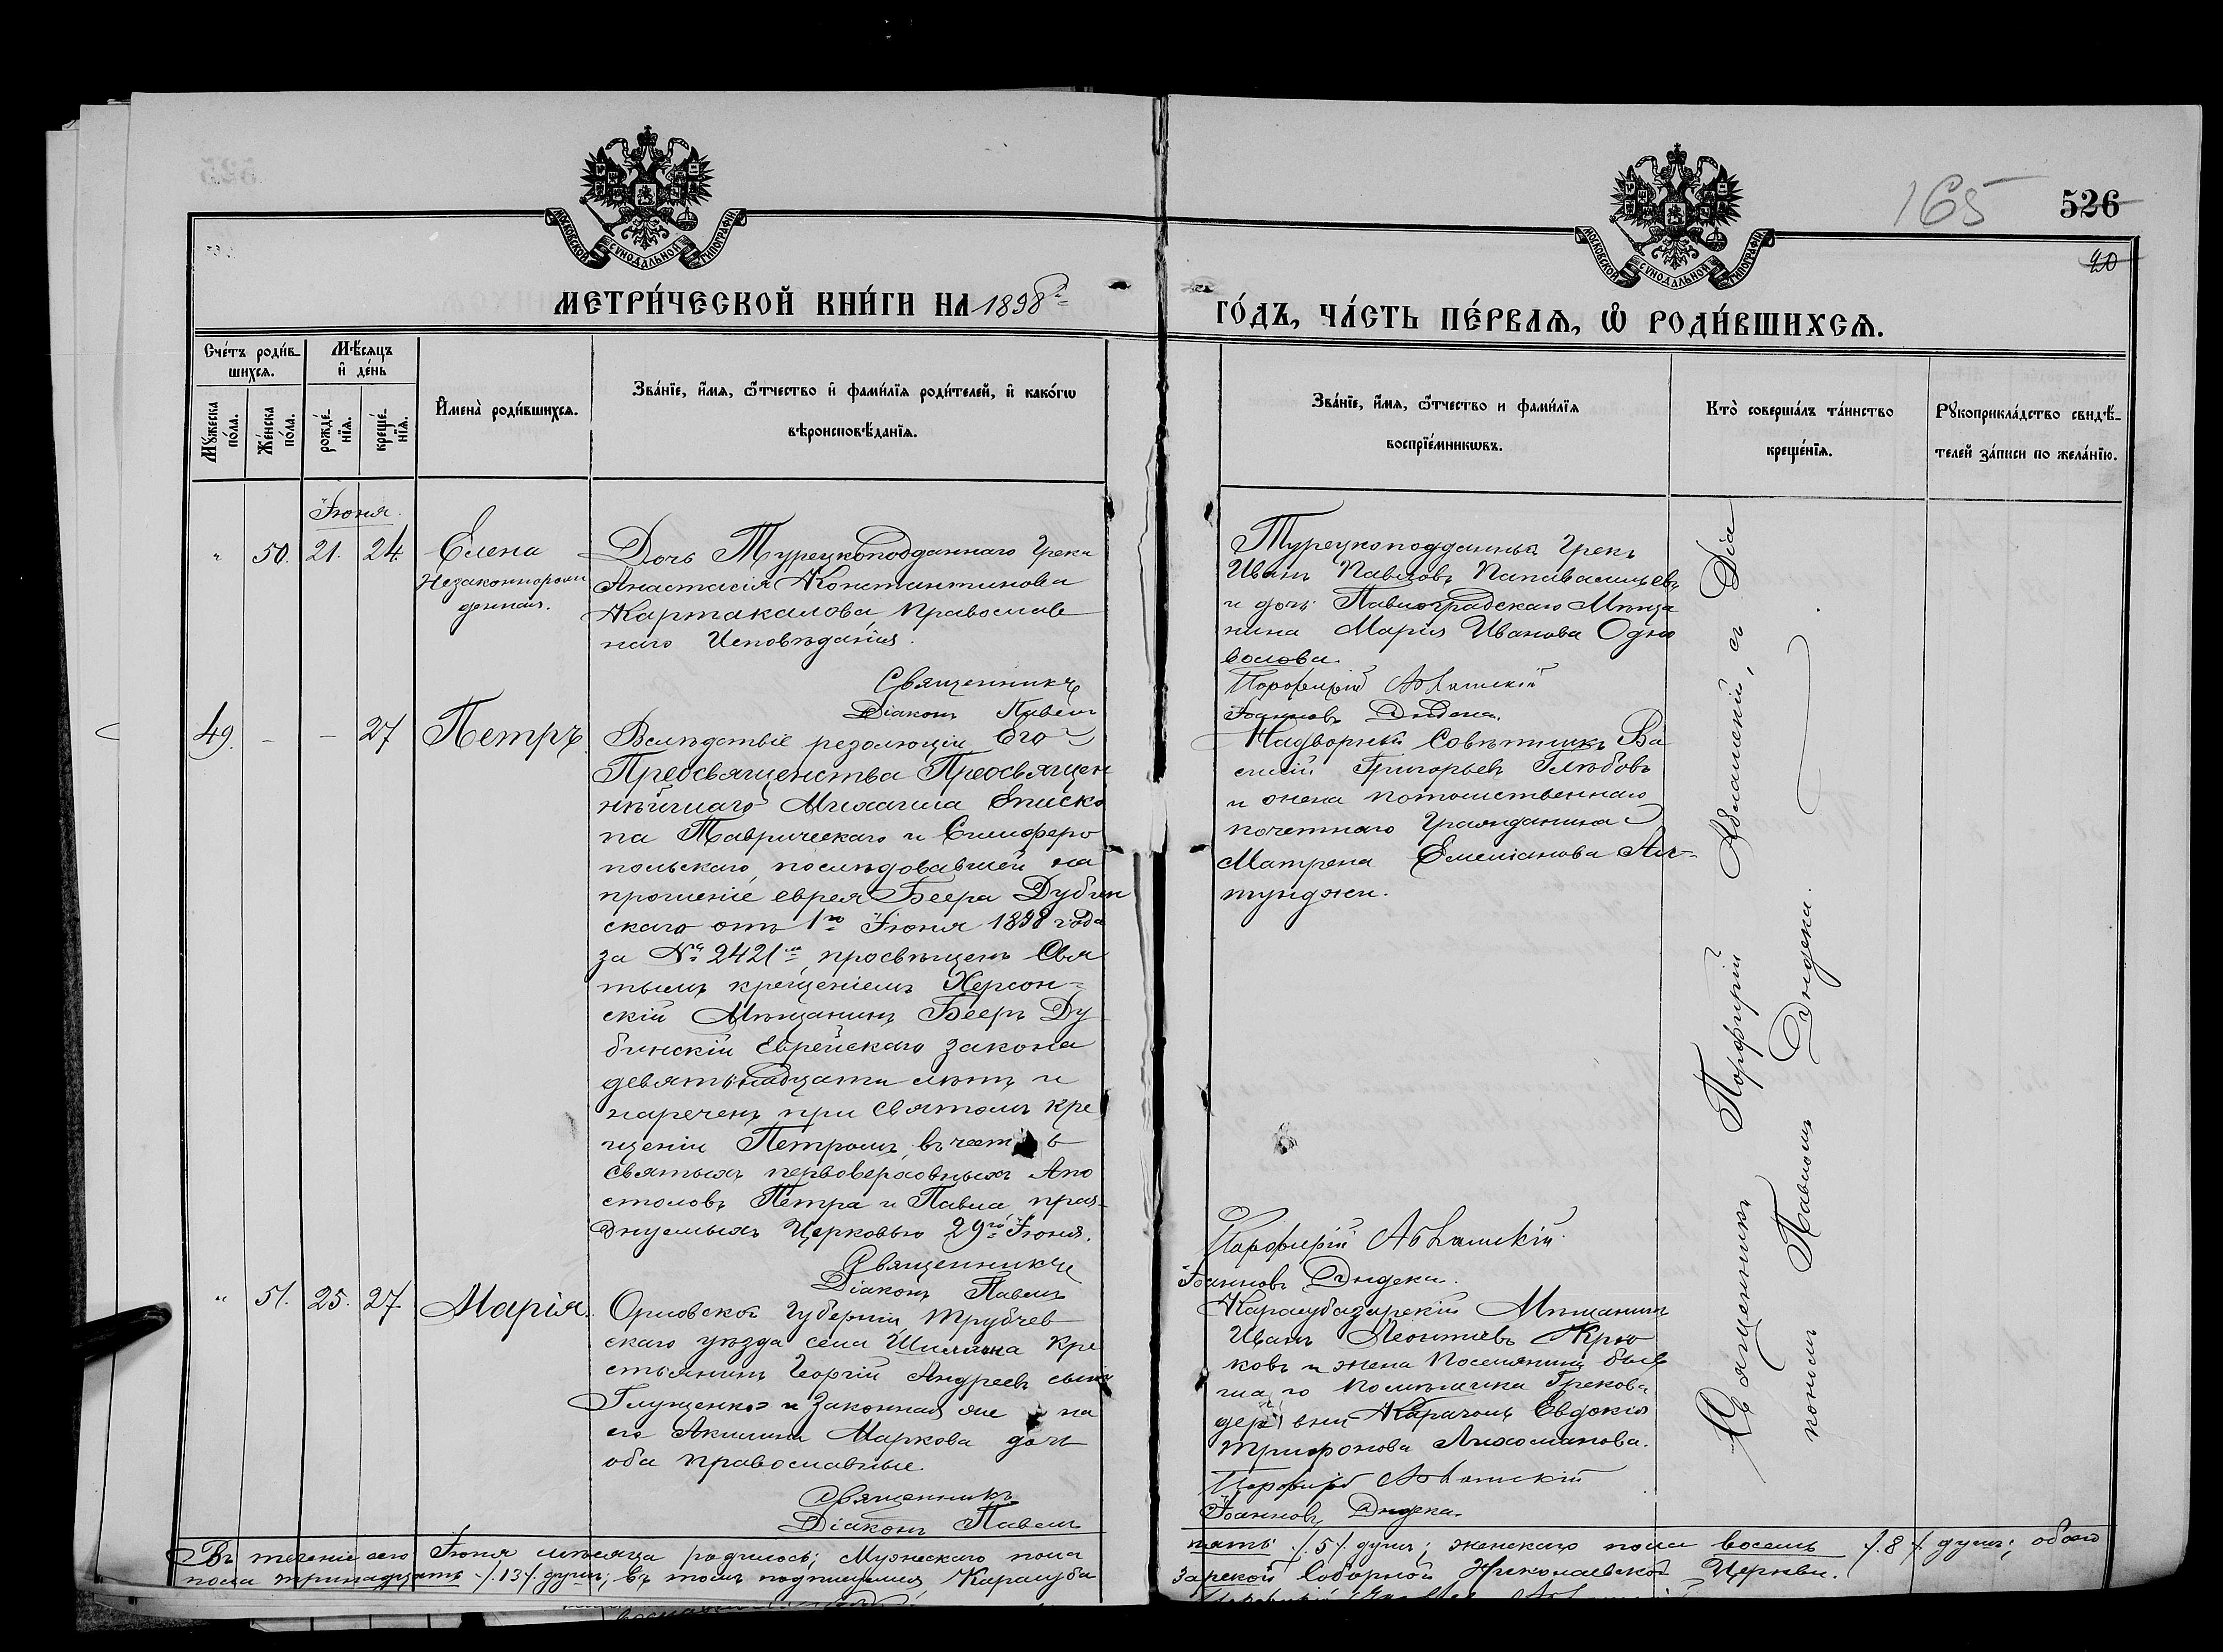 165
526
20
МОСКОВСКОЙ СѴНОДАЛЬНОЙ ТИПОГРАФІИ
МОСКОВСКОЙ СѴНОДАЛЬНОЙ ТИПОГРАФІИ
МЕТРИ́ЧЕСКОЙ КНИ́ГИ НА 1898й
ГО́ДЪ, ЧА́СТЬ ПЕ́РВАѦ, Ѽ РОДИ́ВШИХСѦ.
Сче́тъ роди́в-
шихсѧ.
Мѣ́сѧцъ
и҆ де́нь
Мꙋ́жеска по́ла.
Же́нска по́ла.
рожде́-
нїѧ.
креще́-
нїѧ.
И҆мена̀ роди́вшихсѧ.
Зва́нїе, и҆́мѧ, ѻ҆́тчество и҆ фами́лїѧ роди́телей, и҆ како́гѡ
вѣроисповѣ́данїѧ.
Зва́нїе, и҆́мѧ, ѻ҆́тчество и фами́лїѧ
воспрїе́мникѡвъ.
Кто̀ соверша́лъ та́инство
креще́нїѧ.
Рꙋкоприкла́дство свидѣ́-
телей за́писи по жела́нїю.
Іюня.
" 50. 21. 24 Елена
Незаконнорож
денная.
Дочь Турецкоподданнаго Грека
Анастасія Константинова
Картакалова, Православ
наго Исповѣданія.
Священникъ
Діаконъ Павелъ
Турецкоподданный Грекъ
Иванъ Павловъ Папавасильевъ
и дочь Павлоградскаго Мѣща
нина Марія Иванова Одно
волова.
Порфирій
Іоанновъ Дидена.
49. - - 27 Петръ.
Вслѣдствіе резолюціи Его
Преосвященства Преосвящен
нѣйшаго Михаила Еписко
па Таврическаго и Симферо
польскаго, послѣдовавшей на
прошеніе еврея Беера Дубин
скаго отъ 1го Іюня 1898 года
за № 2421м, просвѣщенъ Свя
тымъ крещеніемъ Херсон-
скій Мѣщанинъ Бееръ Ду
бинскій Еврейскаго закона
девятьнадцати лѣтъ и
нареченъ при Святомъ кре
щеніи Петромъ, въ чест ь
святыхъ первоверховныхъ Апо
столовъ Петра и Павла, праз-
днуемыхъ Церковью 29го Іюня.
Священникъ
Діаконъ Павелъ
Надворный Совѣтникъ Ва
силій Григорьевъ Глѣбовъ
и жена потомственнаго
почетнаго Гражданина
Матрена Емеліанова Ал-
тунджи.
Порфирій
Іоанновъ Дидена.
" 51. 25. 27. Марія.
Орловской Губерніи, Трубчев
скаго уѣзда села Шилина Кре
стьянинъ Георгій Андреевъ сынъ
Глущенко и Законная же на
его Акилина Маркова дочь
оба православные.
Священникъ
Діаконъ Павелъ
Карасубазарскій Мѣщанинъ
Иванъ Леонтіевъ Крю
ковъ и жена Поселянина быв
ша го Помѣщика Грекова
дер евни Карачолъ Евдокія
Трифонова Лихоманова.
Порфирій
Іоанновъ Дидена.
Священникъ Порфирій съ Діа
кономъ Павломъ Дидена.
Въ теченіе сего Іюня мѣсяца родилось; Мужескаго пола
пять /.5/. душъ; женскаго пола восемь /.8/. душъ; обоего
пола тринадцать /.13/. душъ; въ томъ подписуемся, Карасуба
зарской Соборной Николаевской Церкви.